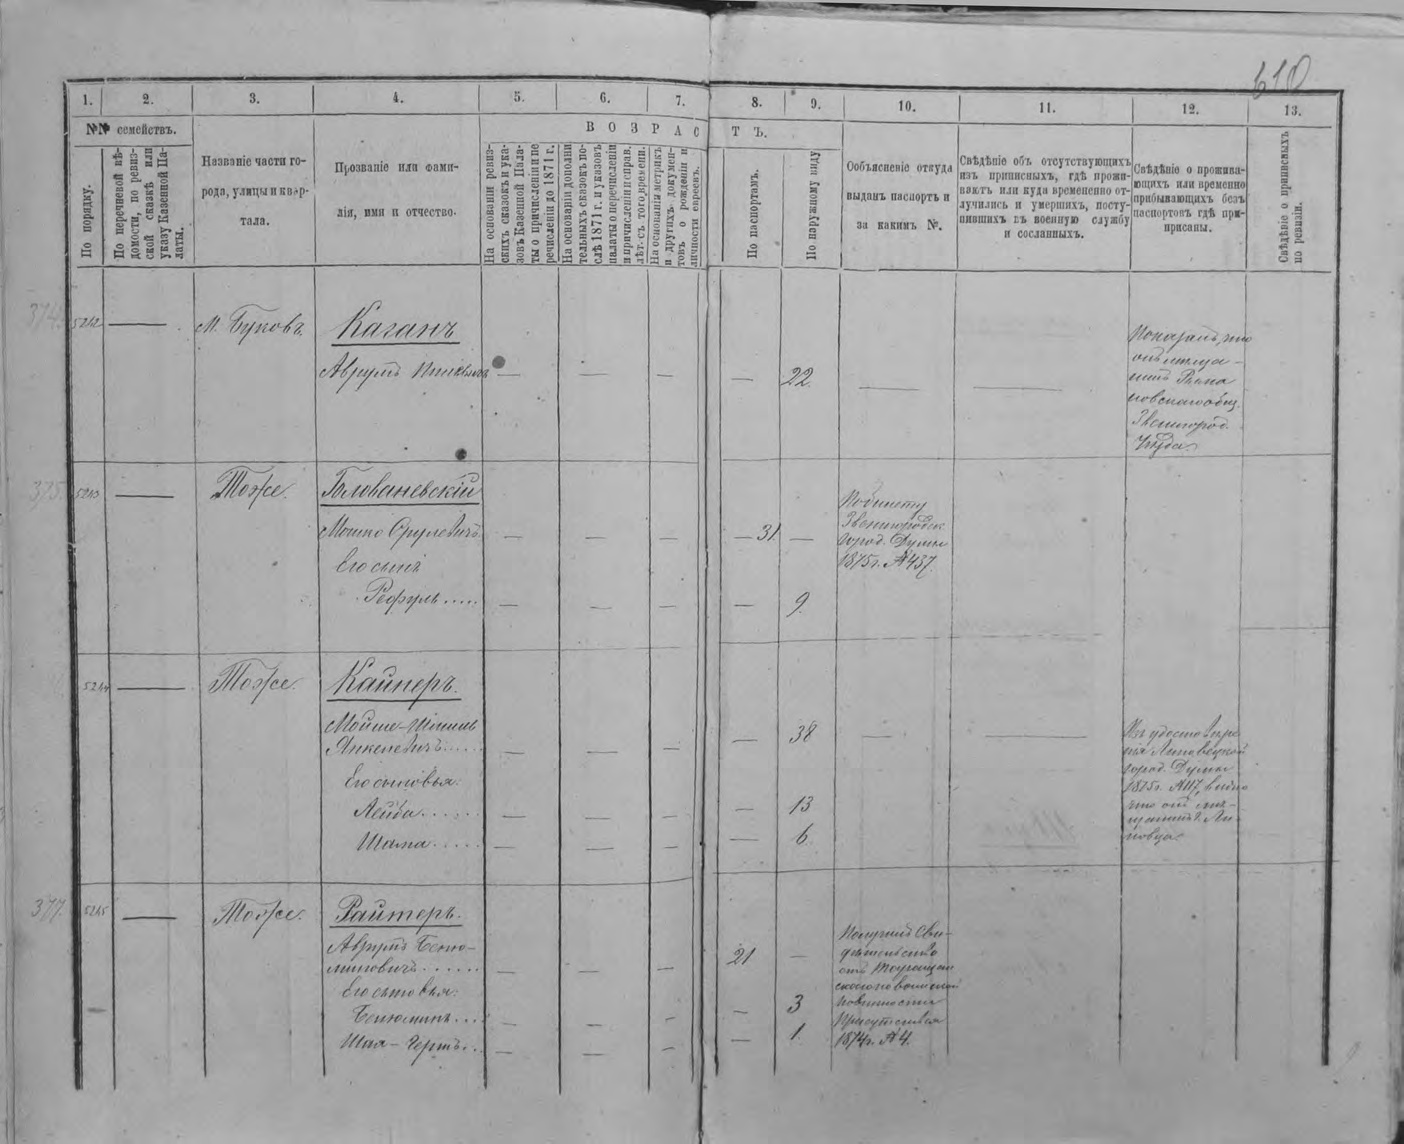 610
1. 2. 3. 4. 5. 6. 7. 8. 9. 10. 11. 12. 13.
№№ семействъ.
В О З Р А С Т Ъ.
По порядку.
По перечневой вѣ-
домости, по ревиз-
ской сказкѣ или
указу Казенной Па-
латы.
Названіе части го-
рода, улицы и квар-
тала.
Прозваніе или фами-
лія, имя и отчество.
На основаніи ревиз-
скихъ сказокъ и ука-
зовъ Казенной Пала-
ты о причисленіи и пе
речисленіи до 1871 г.
На основаніи дополни
тельныхъ сказокъ по-
слѣ 1871 г. и указовъ
палаты о перечисленіи
и причисленіи и справ.
лѣт. съ того времени.
На основаніи метрикъ
и другихъ докумен-
товъ о рожденіи и
личности евреевъ.
По паспортамъ.
По наружному виду
Объясненіе откуда
выданъ паспортъ и
за какимъ №.
Свѣдѣніе объ отсутствующихъ
изъ приписныхъ, гдѣ прожи-
ваютъ или куда временно от-
лучились и умершихъ, посту-
пившихъ въ военную службу
и сосланныхъ.
Свѣдѣніе о прожива-
ющихъ или временно
прибывающихъ безъ
паспортовъ гдѣ при-
писаны.
Свѣдѣніе о приписныхъ
по ревизіи.
374.
5212 — М. Буковъ. Каганъ
Аврумъ — — — — 22. — —
Показалъ, что
онъ мѣща-
нинъ
общ.
Звенигород.
Уѣзда.
375.
5213 — Тоже. Бловановскій
Мошко Срулевичъ. — — — — 31. —
Его сынъ
..... — — — — 9.
Звенигородск.
город. Думы
1875 г. № 437.
5214 — Тоже. Кайперъ.
Янкелевичъ..... — — — — 38 — —
Его сыновья:
Лейба...... — 13
Шама..... — — — — 6.
Липовецкой
город. Думы
1875 г. № 117, видно
что онъ мѣ-
щанинъ г. Ли-
повца.
377.
5215 — Тоже. Райтеръ.
Аврумъ Беню-
миновичъ...... — — — 21 —
Его сыновья:
Бенюминъ... — — — — 3
Шая-Гершъ.. — — — — 1.
Получилъ сви-
дѣтельство
отъ Таращан
скаго по воинской
повинности
присутствія
1874 г. № 4.